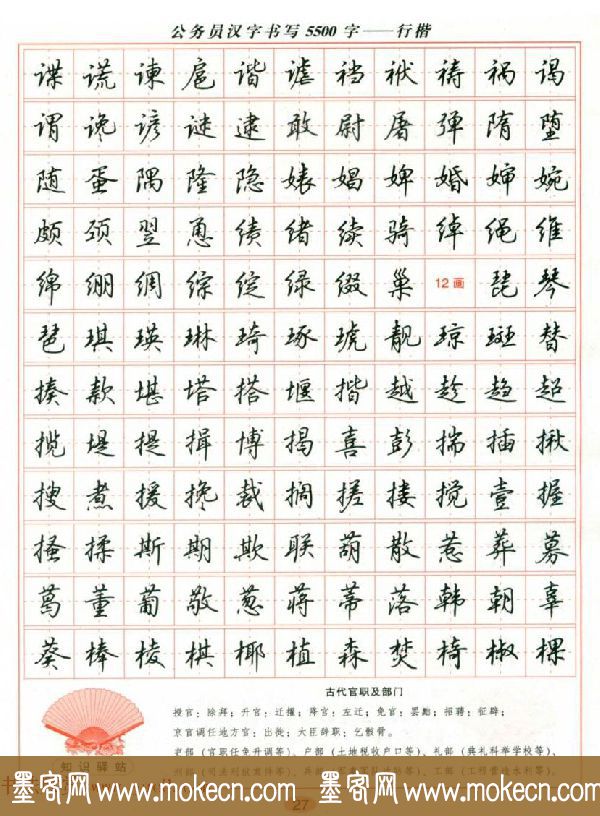 公务员汉字书写5500字——行楷
谍 谎 谏 扈 谐 谑 裆 袱 祷 祸 谒
谓 谗 谚 谜 逮 敢 尉 屠 弹 隋 堕
随 蛋 隅 隆 隐 婊 娼 婢 婚 婶 婉
颇 颈 翌 恿 绩 绪 续 骑 绰 绳 维
绵 绷 绸 综 绽 绿 缀 巢 12画 琵 琴
琶 琪 瑛 琳 琦 琢 琥 靓 琼 斑 替
揍 款 堪 塔 搭 堰 揩 越 趁 趋 超
揽 堤 提 揖 博 揭 喜 彭 揣 插 揪
搜 煮 援 搀 裁 搁 搓 搂 搅 壹 握
搔 揉 斯 期 欺 联 葫 散 惹 葬 募
葛 董 葡 敬 葱 蒋 蒂 落 韩 朝 辜
葵 棒 棱 棋 椰 植 森 焚 椅 椒 棵
古代官职及部门
授官：除拜；升官：迁擢；降官：左迁；免官：罢黜；招聘：征辟；
京官调任地方官：出徙；大臣辞职：乞骸骨。
吏部（官职任免升调等）、户部（土地税收户口等）、礼部（典礼科举学校等）、
知识驿站
墨客网 www.mokecn.com 墨客网 www.mokecn.com
27